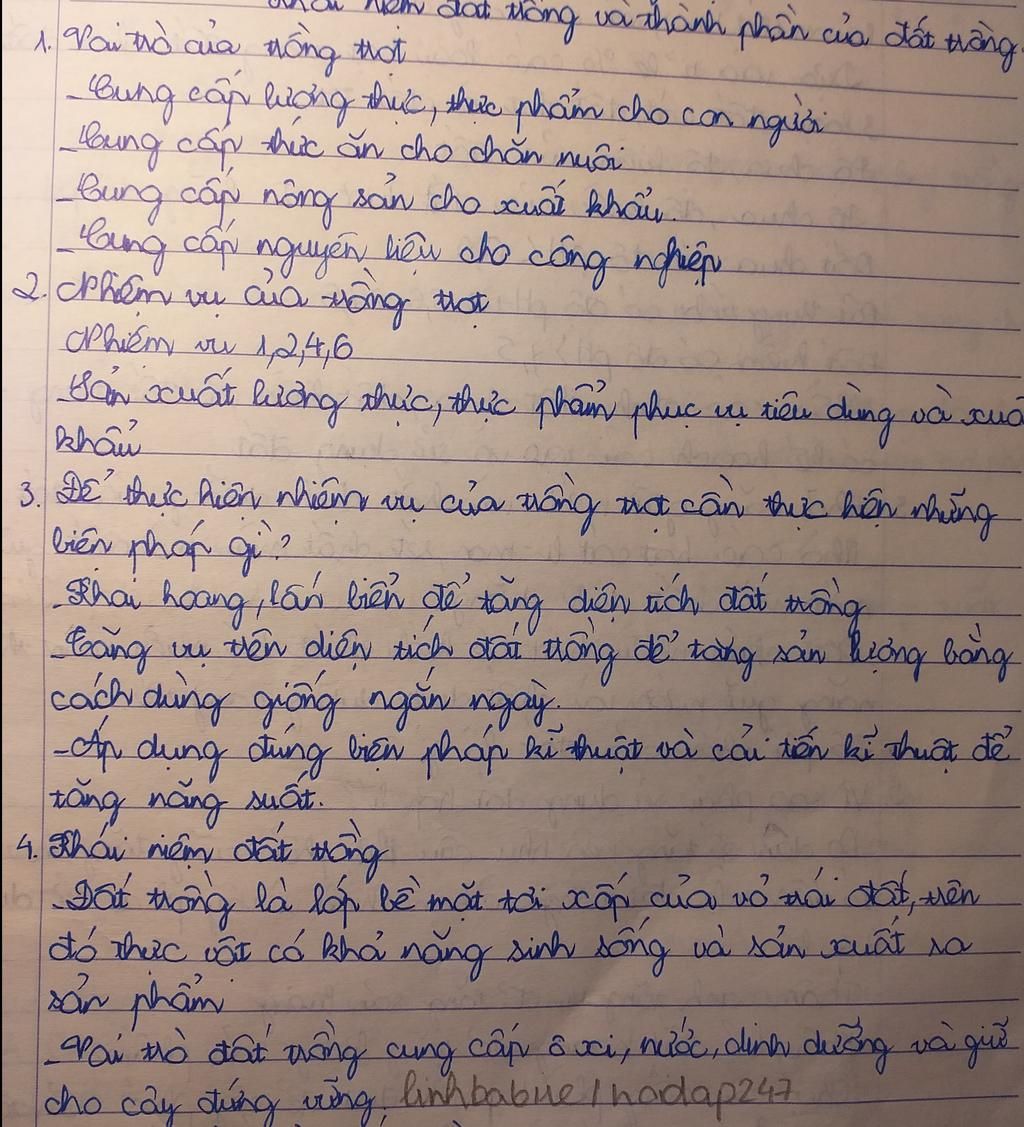 Khái niệm đất trồng và thành phần của đất trồng
1. Vai trò của trồng trọt
- Cung cấp lương thực, thực phẩm cho con người
- Cung cấp thức ăn cho chăn nuôi
- Cung cấp nông sản cho xuất khẩu.
- Cung cấp nguyên liệu cho công nghiệp
2. Nhiệm vụ của trồng trọt
Nhiệm vụ 1,2,4,6
- Sản xuất lương thực, thực phẩm phục vụ tiêu dùng và xuấ
khẩu
3. Để thực hiện nhiệm vụ của trồng trọt cần thực hện những
biện pháp gì?
- Khai hoang, lấn biển để tăng diện tích đất trồng
- Tăng vụ trên diện tích đất trồng để tăng sản lượng bằng
cách dùng giống ngắn ngày.
- Áp dụng đúng biện pháp kĩ thuật và cải tiến kĩ thuật để
tăng năng suất.
4. Khái niệm đất trồng
- Đất trồng là lớp bề mặt tơi xốp của vỏ trái đất, trên
đó thực vật có khả năng sinh sống và sản xuất ra
sản phẩm
- Vai trò đất trồng cung cấp ô xi, nước, dinh dưỡng và giữ
cho cây đứng vững. linhbabue/hodap247